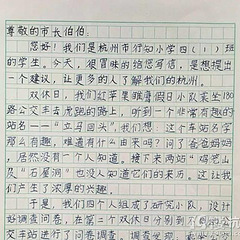 尊敬的市长伯伯:
您好!我们是杭州市行知小学四(1)班
的学生。今天,很冒昧的给您写信,是想提出
一个建议,让更多的人了解我们的杭州。
双休日,我们红苹果雏鹰假日小队乘坐180
路公交车去虎跑的路上,听到一个非常有趣的
站名——“立马回头”。我们想,这个车站名字
那么有趣,难道有什么由来吗?问了爸爸妈妈
,居然没有一个人知道。接下来两站“鸡笼山
”及“石屋洞”也没人知道它们的来历。这让我
们产生了浓厚的兴趣。
于是,我们四个人组成了研究小队,设计
好调查问卷,在第三个双休日分别到
交车站进行了问卷调查